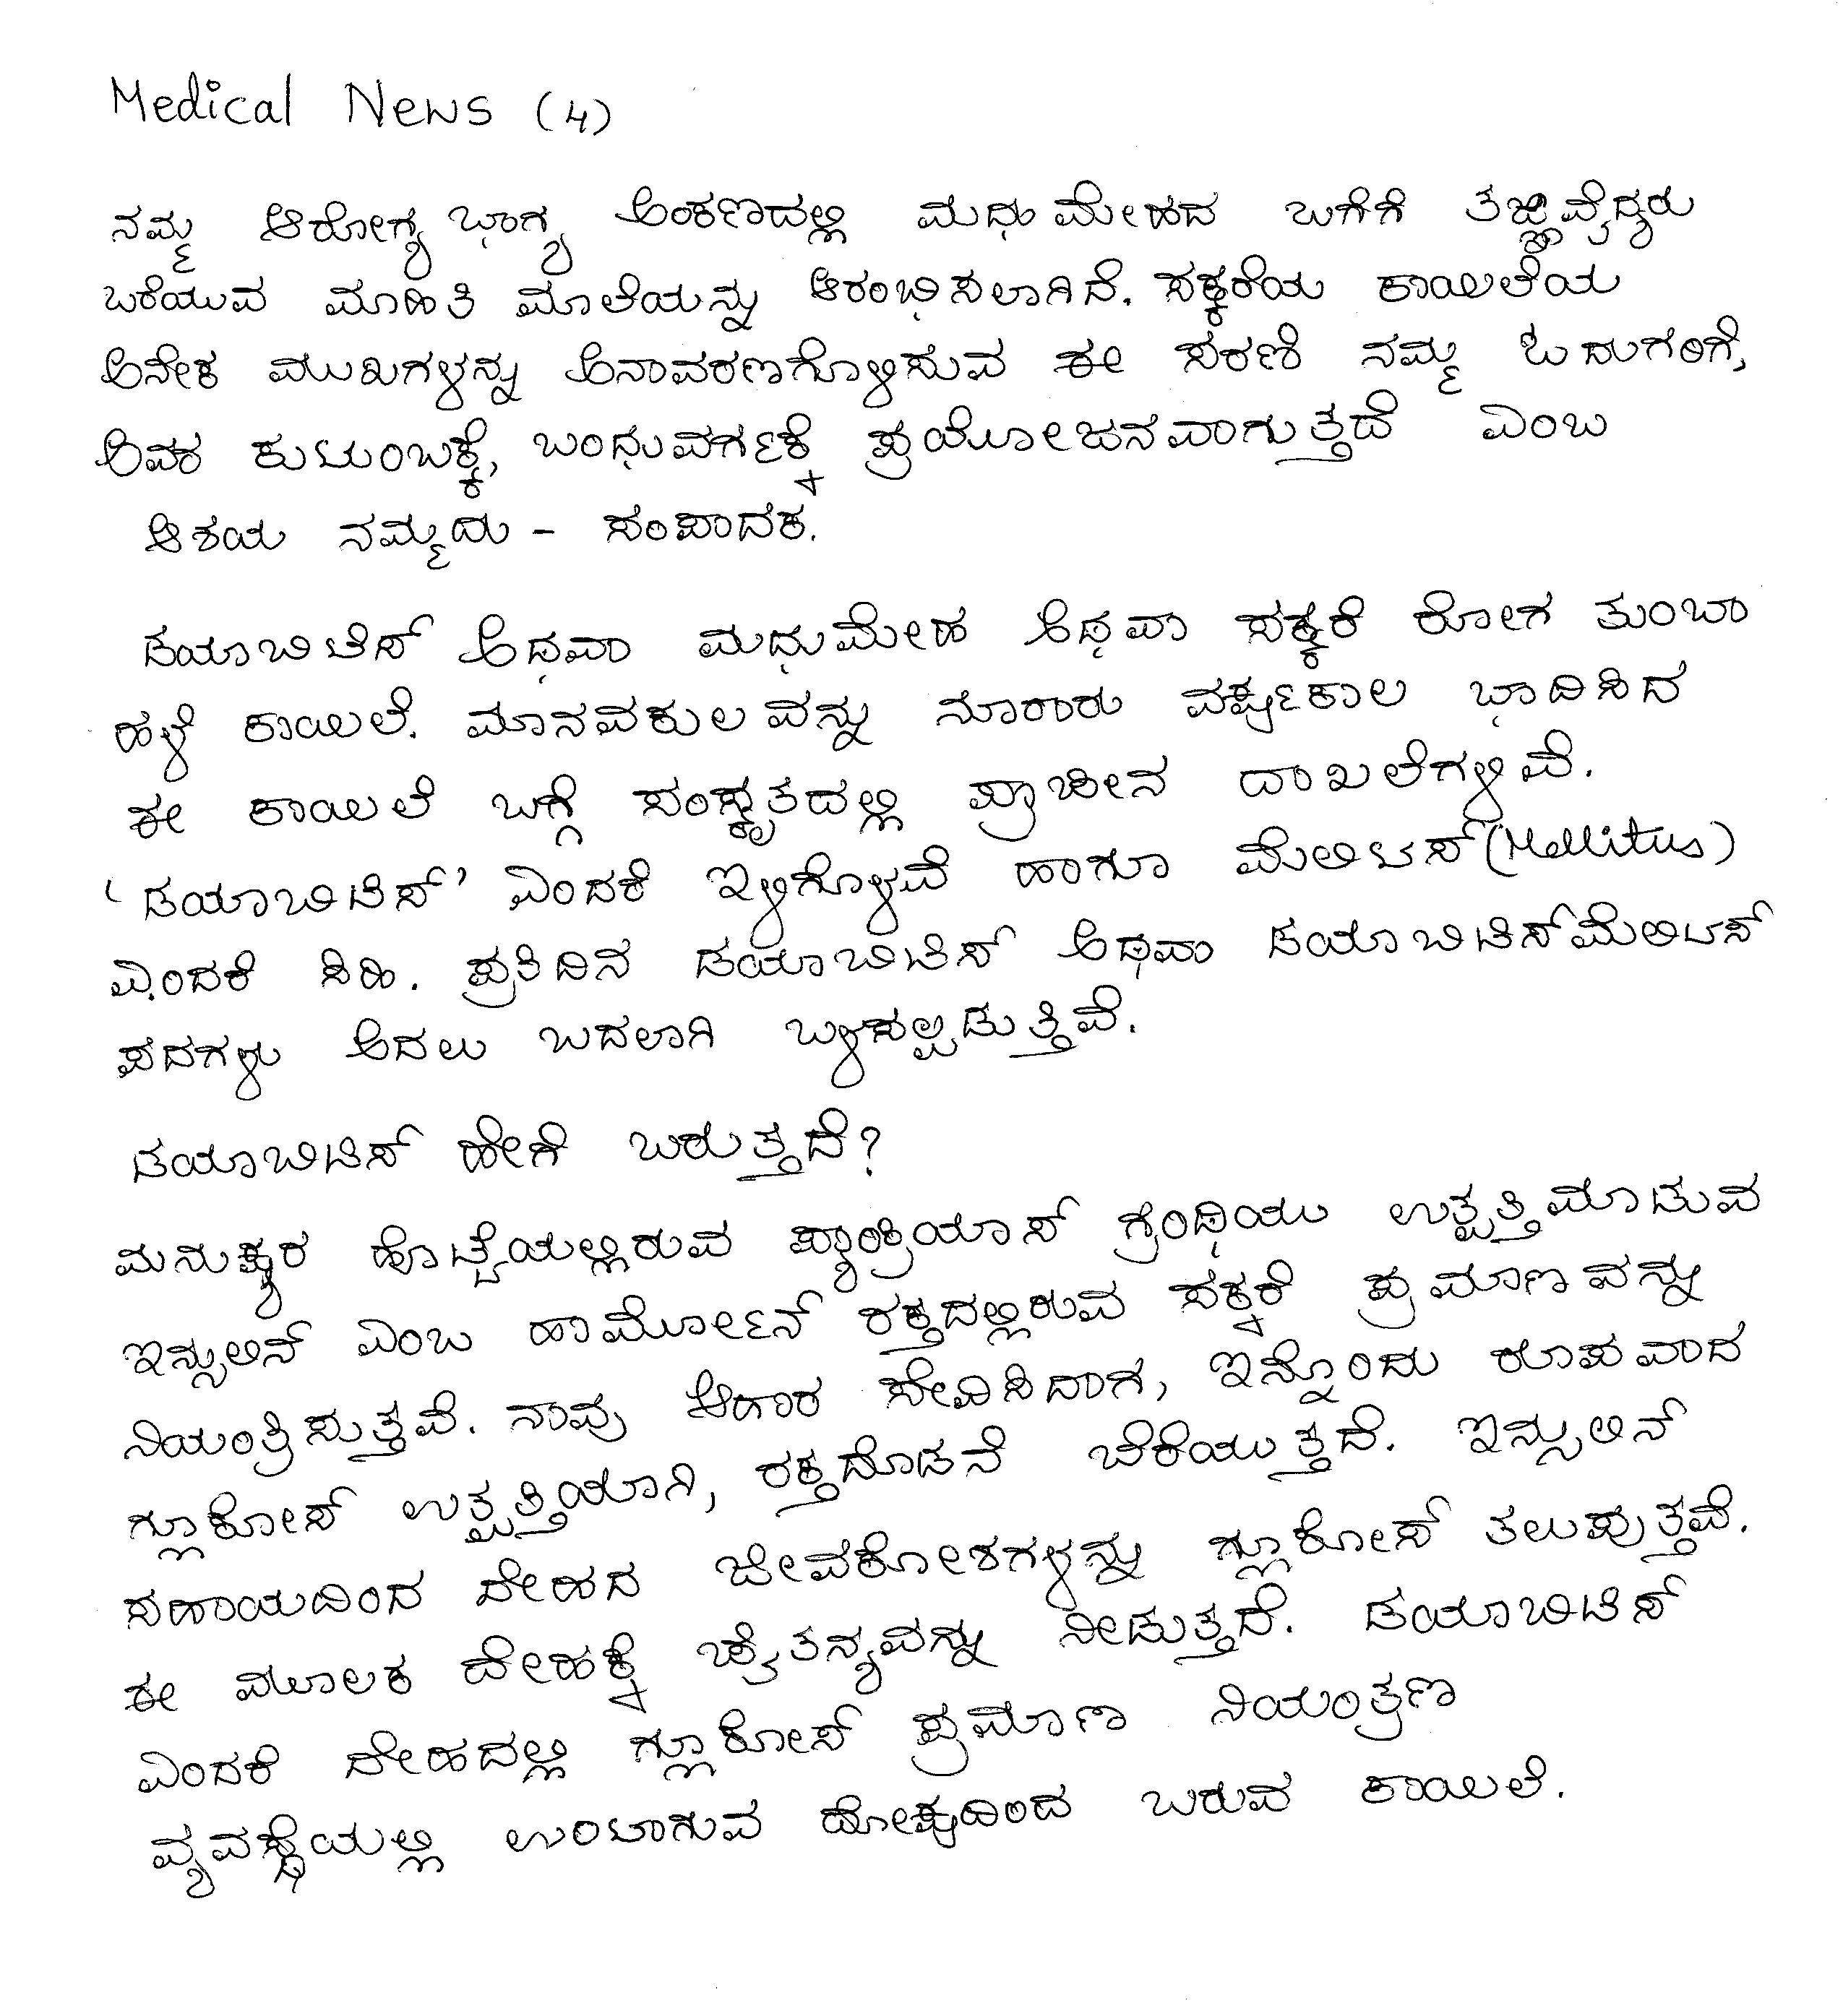 Medical News (4)
ನಮ್ಮ ಆರೋಗ್ಯ ಭಾಗ್ಯ ಅಂಕಣದಲ್ಲಿ ಮಧುಮೇಹದ ಬಗೆಗೆ ತಜ್ಞವೈದ್ಯರು
ಬರೆಯುವ ಮಾಹಿತಿ ಮಾಲೆಯನ್ನು ಆರಂಭಿಸಲಾಗಿದೆ. ಸಕ್ಕರೆಯ ಕಾಯಿಲೆಯ
ಅನೇಕ ಮುಖಗಳನ್ನು ಅನಾವರಣಗೊಳಿಸುವ ಈ ಸರಣಿ ನಮ್ಮ ಓದುಗರಿಗೆ,
ಅವರ ಕುಟುಂಬಕ್ಕೆ, ಬಂಧುವರ್ಗಕ್ಕೆ ಪ್ರಯೋಜನವಾಗುತ್ತದೆ ಎಂಬ
ಆಶಯ ನಮ್ಮದು - ಸಂಪಾದಕ.
ಡಯಾಬಿಟಿಸ್ ಅಥವಾ ಮಧುಮೇಹ ಅಥವಾ ಸಕ್ಕರೆ ರೋಗ ತುಂಬಾ
ಹಳೆ ಕಾಯಿಲೆ. ಮಾನವಕುಲವನ್ನು ನೂರಾರು ವರ್ಷಕಾಲ ಭಾದಿಸಿದ
ಈ ಕಾಯಿಲೆ ಬಗ್ಗೆ ಸಂಸ್ಕೃತದಲ್ಲಿ ಪ್ರಾಚೀನ ದಾಖಲೆಗಳಿವೆ.
‘ಡಯಾಬಿಟಿಸ್’ ಎಂದರೆ ಇಳಿಗೊಳವೆ ಹಾಗೂ ಮೆಲಿಟಸ್ (Mellitus)
ಎಂದರೆ ಸಿಹಿ. ಪ್ರತಿದಿನ ಡಯಾಬಿಟಿಸ್ ಅಥವಾ ಡಯಾಬಿಟಿಸ್‌ಮೆಲಿಟಸ್
ಪದಗಳು ಅದಲು ಬದಲಾಗಿ ಬಳಸಲ್ಪಡುತ್ತಿವೆ.
ಡಯಾಬಿಟಿಸ್ ಹೇಗೆ ಬರುತ್ತದೆ?
ಮನುಷ್ಯರ ಹೊಟ್ಟೆಯಲ್ಲಿರುವ ಪ್ಯಾಂಕ್ರಿಯಾಸ್ ಗ್ರಂಥಿಯು ಉತ್ಪತ್ತಿಮಾಡುವ
ಇನ್ಸುಲಿನ್ ಎಂಬ ಹಾರ್ಮೋನ್ ರಕ್ತದಲ್ಲಿರುವ ಸಕ್ಕರೆ ಪ್ರಮಾಣವನ್ನು
ನಿಯಂತ್ರಿಸುತ್ತವೆ. ನಾವು ಆಹಾರ ಸೇವಿಸಿದಾಗ, ಇನ್ನೊಂದು ರೂಪವಾದ
ಗ್ಲೂಕೋಸ್ ಉತ್ಪತ್ತಿಯಾಗಿ, ರಕ್ತದೊಡನೆ ಬೆರೆಯುತ್ತದೆ. ಇನ್ಸುಲಿನ್
ಸಹಾಯದಿಂದ ದೇಹದ ಜೀವಕೋಶಗಳನ್ನು ಗ್ಲೂಕೋಸ್ ತಲುಪುತ್ತವೆ.
ಈ ಮೂಲಕ ದೇಹಕ್ಕೆ ಚೈತನ್ಯವನ್ನು ನೀಡುತ್ತದೆ. ಡಯಾಬಿಟಿಸ್
ಎಂದರೆ ದೇಹದಲ್ಲಿ ಗ್ಲೂಕೋಸ್ ಪ್ರಮಾಣ ನಿಯಂತ್ರಣ
ವ್ಯವಸ್ಥೆಯಲ್ಲಿ ಉಂಟಾಗುವ ದೋಷದಿಂದ ಬರುವ ಕಾಯಿಲೆ.